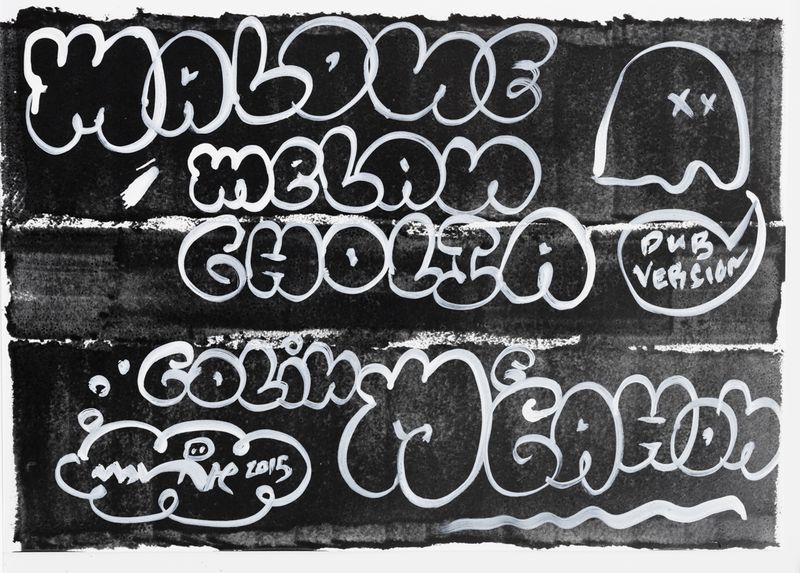 MALONE
MELAN
CHOLIA
DUB
VERSION
COLIN McCAHON
2015